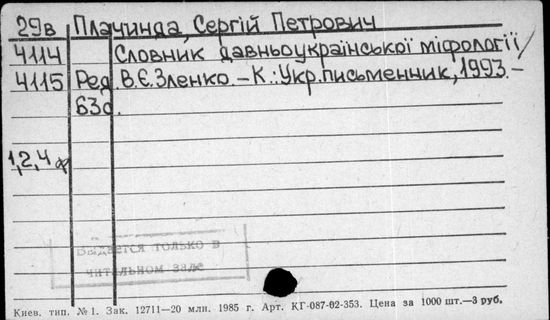 29в Плачинда, Сергій Петрович
4114 Словник давньоукраїнської міфології/
4115 Ред. В.Є.Зленко.-К.:Укр.письменник,1993.-
63с.
1,2,4
Выдается только в
читальном зале
Киев. тип. №1. Зак. 12711—20 млн. 1985 г. Арт. КГ-087-02-353. Цена за 1000 шт.—3 руб.